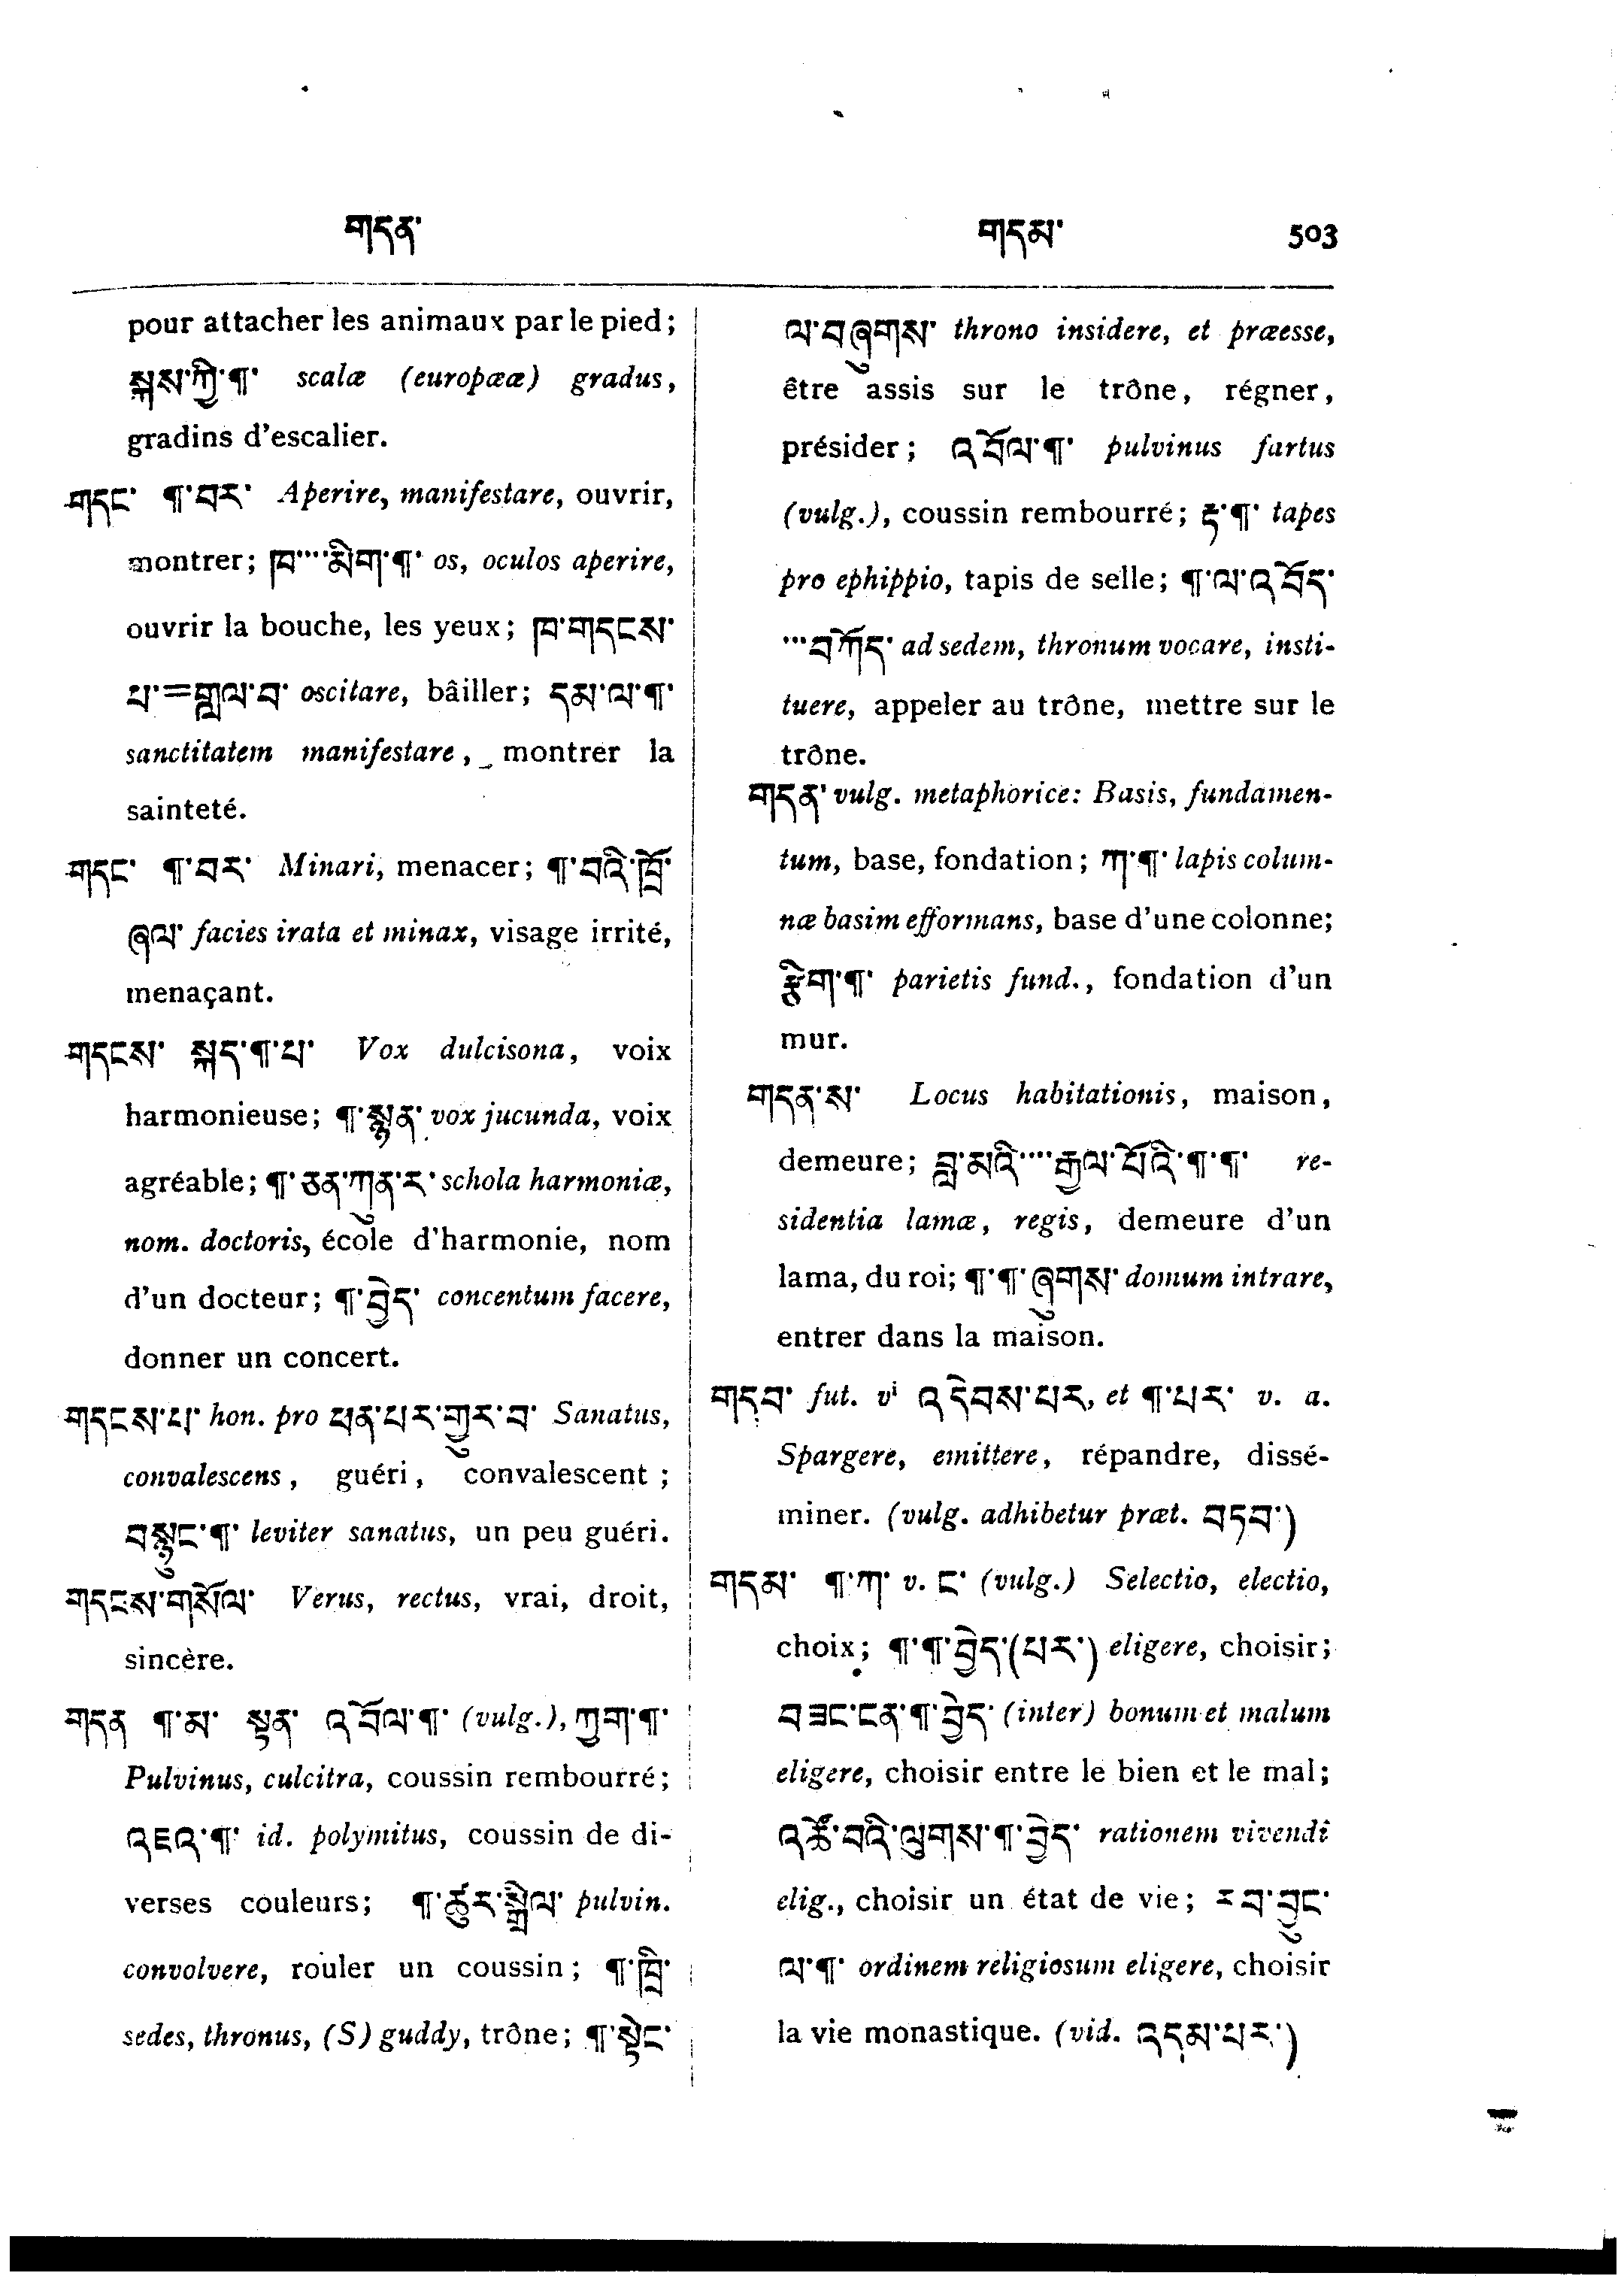 གདན་ གདམ་ 503
pour attacher les animaux par le pied;
སྐས་ཀྱི་¶་ scalæ (europææ) gradus,
gradins d'escalier.
གདང་ ¶་བར་ Aperire, manifestare, ouvrir,
montrer; ཁ་་་་མིག་¶་ os, oculos aperire,
ouvrir la bouche, les yeux; ཁ་གདངས་
པ་=གླལ་བ་ oscitare, bâiller; དམ་ལ་¶་
sanctitatem manifestare, montrer la
sainteté.
གདང་ ¶་བར་ Minari, menacer; ¶་བའི་ཁྲོ་
ཞལ་ facies irata et minax, visage irrité,
menaçant.
གདངས་ སྐད་¶་པ་ Vox dulcisona, voix
harmonieuse; ¶་སྙན་ vox jucunda, voix
agréable; ¶་ཅན་ཀུན་ར་ schola harmoniæ,
nom. doctoris, école d'harmonie, nom
d'un docteur; ¶་བྱེད་ concentum facere,
donner un concert.
གདངས་པ་ hon. pro ཕན་པར་གྱུར་བ་ Sanatus,
convalescens, guéri, convalescent;
བསྙུང་¶་ leviter sanatus, un peu guéri.
གདངས་གསོལ་ Verus, rectus, vrai, droit,
sincère.
གདན ¶་མ་ སྟན་ འབོལ་¶་ (vulg.), ཀྱག་¶་
Pulvinus, culcitra, coussin rembourré;
འཇའ་¶་ id. polymitus, coussin de di-
verses couleurs; ¶་ཚུར་སྒྲིལ་ pulvin.
convolvere, rouler un coussin; ¶་ཁྲི་
sedes, thronus, (S) guddy, trône; ¶་སྟེང་
ལ་བཞུགས་ throno insidere, et præesse,
être assis sur le trône, régner,
présider; འབོལ་¶་ pulvinus fartus
(vulg.), coussin rembourré; རྟ་¶་ tapes
pro ephippio, tapis de selle; ¶་ལ་འབོད་
་་་བཀོད་ ad sedem, thronum vocare, insti-
tuere, appeler au trône, mettre sur le
trône.
གདན་ vulg. metaphorice: Basis, fundamen-
tum, base, fondation; ཀ་¶་ lapis colum-
næ basim efformans, base d'une colonne;
རྩིག་¶་ parietis fund., fondation d'un
mur.
གདན་ས་ Locus habitationis, maison,
demeure; བླ་མའི་་་་རྒྱལ་པོའི་¶་¶་ re-
sidentia lamæ, regis, demeure d'un
lama, du roi; ¶་¶་ཞུགས་ domum intrare,
entrer dans la maison.
གདབ་ fut. vⁱ འདེབས་པར, et ¶་པར་ v. a.
Spargere, emittere, répandre, dissé-
miner. (vulg. adhibetur præt. བཏབ་)
གདམ་ ¶་ཀ་ v. ང་ (vulg.) Selectio, electio,
choix; ¶་¶་བྱེད་(པར་) eligere, choisir;
བཟང་ངན་¶་བྱེད་ (inter) bonum et malum
eligere, choisir entre le bien et le mal;
འཚོ་བའི་ལུགས་¶་བྱེད་ rationem vivendi
elig., choisir un état de vie; རབ་བྱུང་
ལ་¶་ ordinem religiosum eligere, choisir
la vie monastique. (vid. འདམ་པར་)